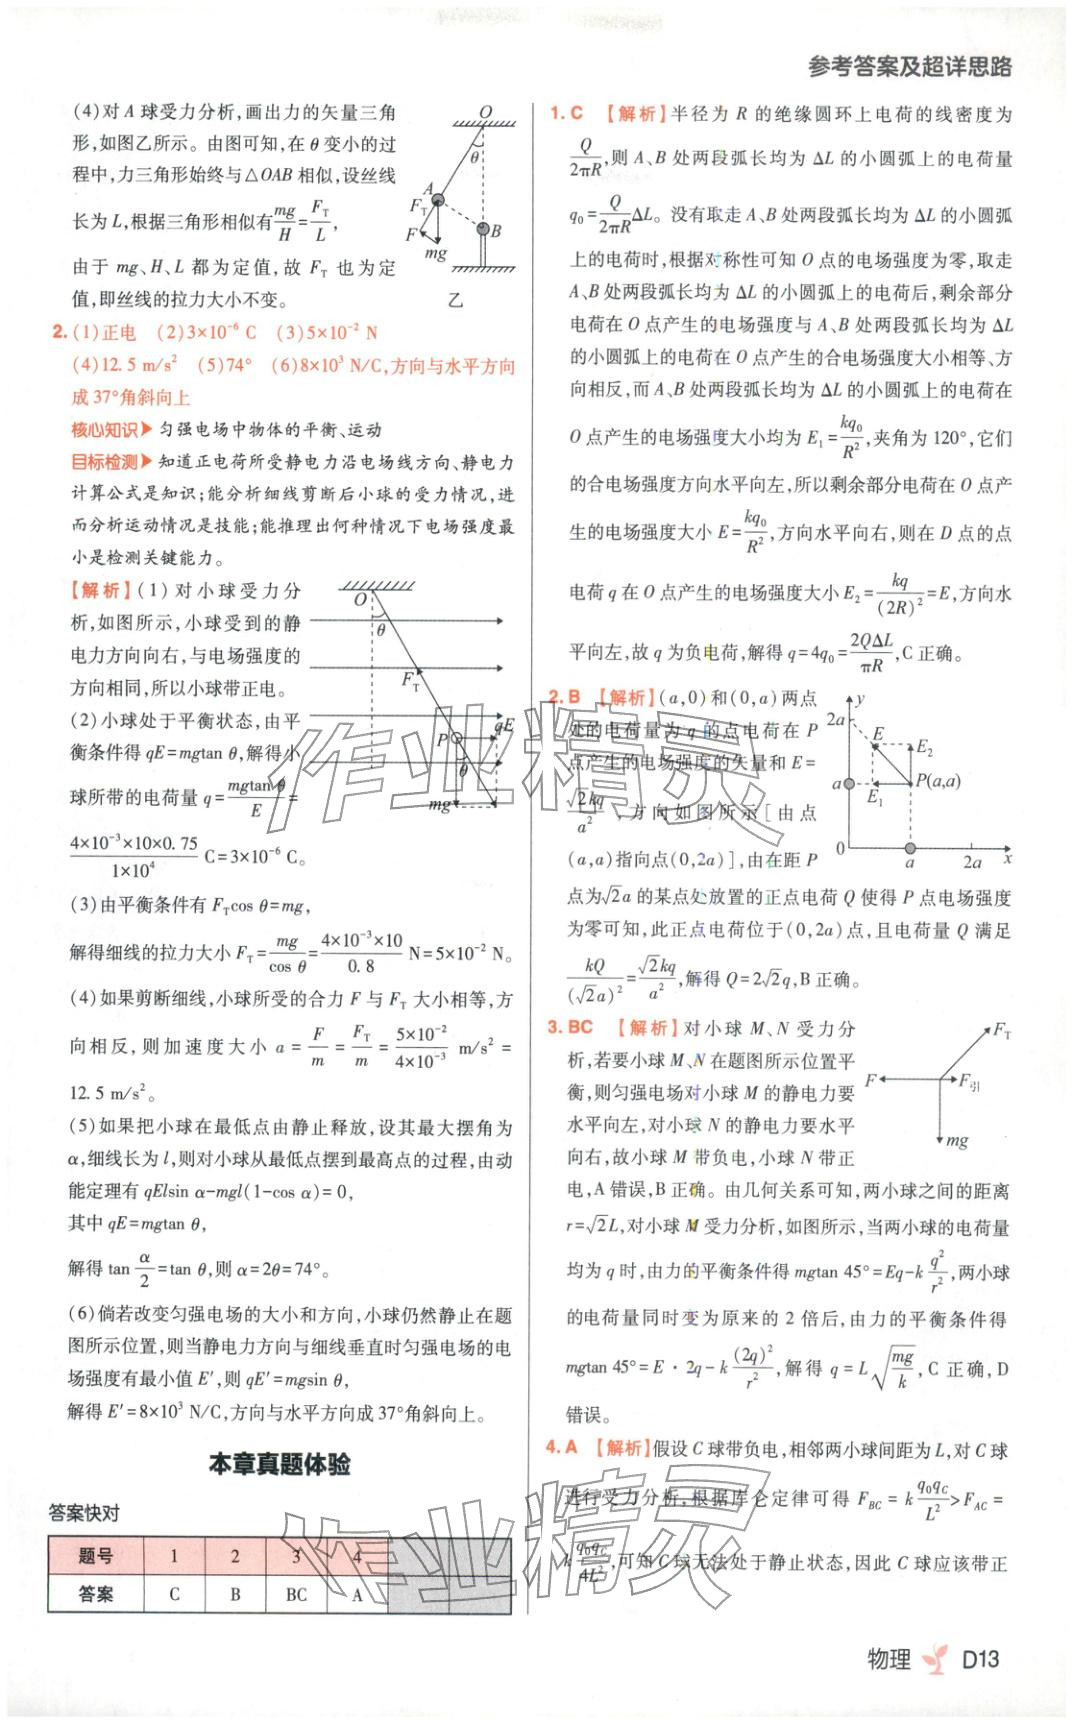 参考答案及超详思路
(4)对 A 球受力分析,画出力的矢量三角
形,如图乙所示。由图可知,在 θ 变小的过
程中,力三角形始终与△OAB 相似,设丝线
长为 L,根据三角形相似有mg/H=F_T/L,
由于 mg、H、L 都为定值,故 F_T 也为定
值,即丝线的拉力大小不变。
O
θ
A
F_T
F
B
mg
乙
2. (1)正电 (2)3×10⁻⁶ C (3)5×10⁻² N
(4)12.5 m/s² (5)74° (6)8×10³ N/C,方向与水平方向
成37°角斜向上
核心知识▶ 匀强电场中物体的平衡、运动
目标检测▶ 知道正电荷所受静电力沿电场线方向、静电力
计算公式是知识;能分析细线剪断后小球的受力情况,进
而分析运动情况是技能;能推理出何种情况下电场强度最
小是检测关键能力。
【解析】(1)对小球受力分
析,如图所示,小球受到的静
电力方向向右,与电场强度的
方向相同,所以小球带正电。
(2)小球处于平衡状态,由平
衡条件得 qE=mgtan θ,解得小
球所带的电荷量 q=mgtan θ/E=
4×10⁻³×10×0.75/1×10⁴ C=3×10⁻⁶ C。
O
θ
F_T
P
qE
θ
mg
(3)由平衡条件有 F_Tcos θ=mg,
解得细线的拉力大小 F_T=mg/cos θ=4×10⁻³×10/0.8 N=5×10⁻² N。
(4)如果剪断细线,小球所受的合力 F 与 F_T 大小相等,方
向相反,则加速度大小 a=F/m=F_T/m=5×10⁻²/4×10⁻³ m/s²=
12.5 m/s²。
(5)如果把小球在最低点由静止释放,设其最大摆角为
α,细线长为 l,则对小球从最低点摆到最高点的过程,由动
能定理有 qElsin α-mgl(1-cos α)=0,
其中 qE=mgtan θ,
解得 tan α/2=tan θ,则 α=2θ=74°。
(6)倘若改变匀强电场的大小和方向,小球仍然静止在题
图所示位置,则当静电力方向与细线垂直时匀强电场的电
场强度有最小值 E′,则 qE′=mgsin θ,
解得 E′=8×10³ N/C,方向与水平方向成37°角斜向上。
本章真题体验
答案快对
题号 1 2 3 4
答案 C B BC A
1. C 【解析】半径为 R 的绝缘圆环上电荷的线密度为
Q/2πR,则 A、B 处两段弧长均为 ΔL 的小圆弧上的电荷量
q₀=Q/2πR ΔL。没有取走 A、B 处两段弧长均为 ΔL 的小圆弧
上的电荷时,根据对称性可知 O 点的电场强度为零,取走
A、B 处两段弧长均为 ΔL 的小圆弧上的电荷后,剩余部分
电荷在 O 点产生的电场强度与 A、B 处两段弧长均为 ΔL
的小圆弧上的电荷在 O 点产生的合电场强度大小相等、方
向相反,而 A、B 处两段弧长均为 ΔL 的小圆弧上的电荷在
O 点产生的电场强度大小均为 E₁=kq₀/R²,夹角为 120°,它们
的合电场强度方向水平向左,所以剩余部分电荷在 O 点产
生的电场强度大小 E=kq₀/R²,方向水平向右,则在 D 点的点
电荷 q 在 O 点产生的电场强度大小 E₂=kq/(2R)²=E,方向水
平向左,故 q 为负电荷,解得 q=4q₀=2QΔL/πR,C 正确。
2. B 【解析】(a,0)和(0,a)两点
处的电荷量为 q 的点电荷在 P
点产生的电场强度的矢量和 E=
√2kq/a²,方向如图所示[由点
(a,a)指向点(0,2a)],由在距 P
点为√2a 的某点处放置的正点电荷 Q 使得 P 点电场强度
为零可知,此正点电荷位于(0,2a)点,且电荷量 Q 满足
kQ/(√2a)²=√2kq/a²,解得 Q=2√2q,B 正确。
y
2a
E
E₂
a
E₁
P(a,a)
0
a
2a
x
3. BC 【解析】对小球 M、N 受力分
析,若要小球 M、N 在题图所示位置平
衡,则匀强电场对小球 M 的静电力要
水平向左,对小球 N 的静电力要水平
向右,故小球 M 带负电,小球 N 带正
电,A 错误,B 正确。由几何关系可知,两小球之间的距离
r=√2L,对小球 M 受力分析,如图所示,当两小球的电荷量
均为 q 时,由力的平衡条件得 mgtan 45°=Eq-k q²/r²,两小球
的电荷量同时变为原来的 2 倍后,由力的平衡条件得
mgtan 45°=E·2q-k (2q)²/r²,解得 q=L√(mg/k),C 正确,D
错误。
F_T
F
F引
mg
4. A 【解析】假设 C 球带负电,相邻两小球间距为 L,对 C 球
进行受力分析,根据库仑定律可得 F_BC=k q₀q_C/L²>F_AC=
k q₀q_C/4L²,可知 C 球无法处于静止状态,因此 C 球应该带正
作业精灵
作业精灵
物理 D13